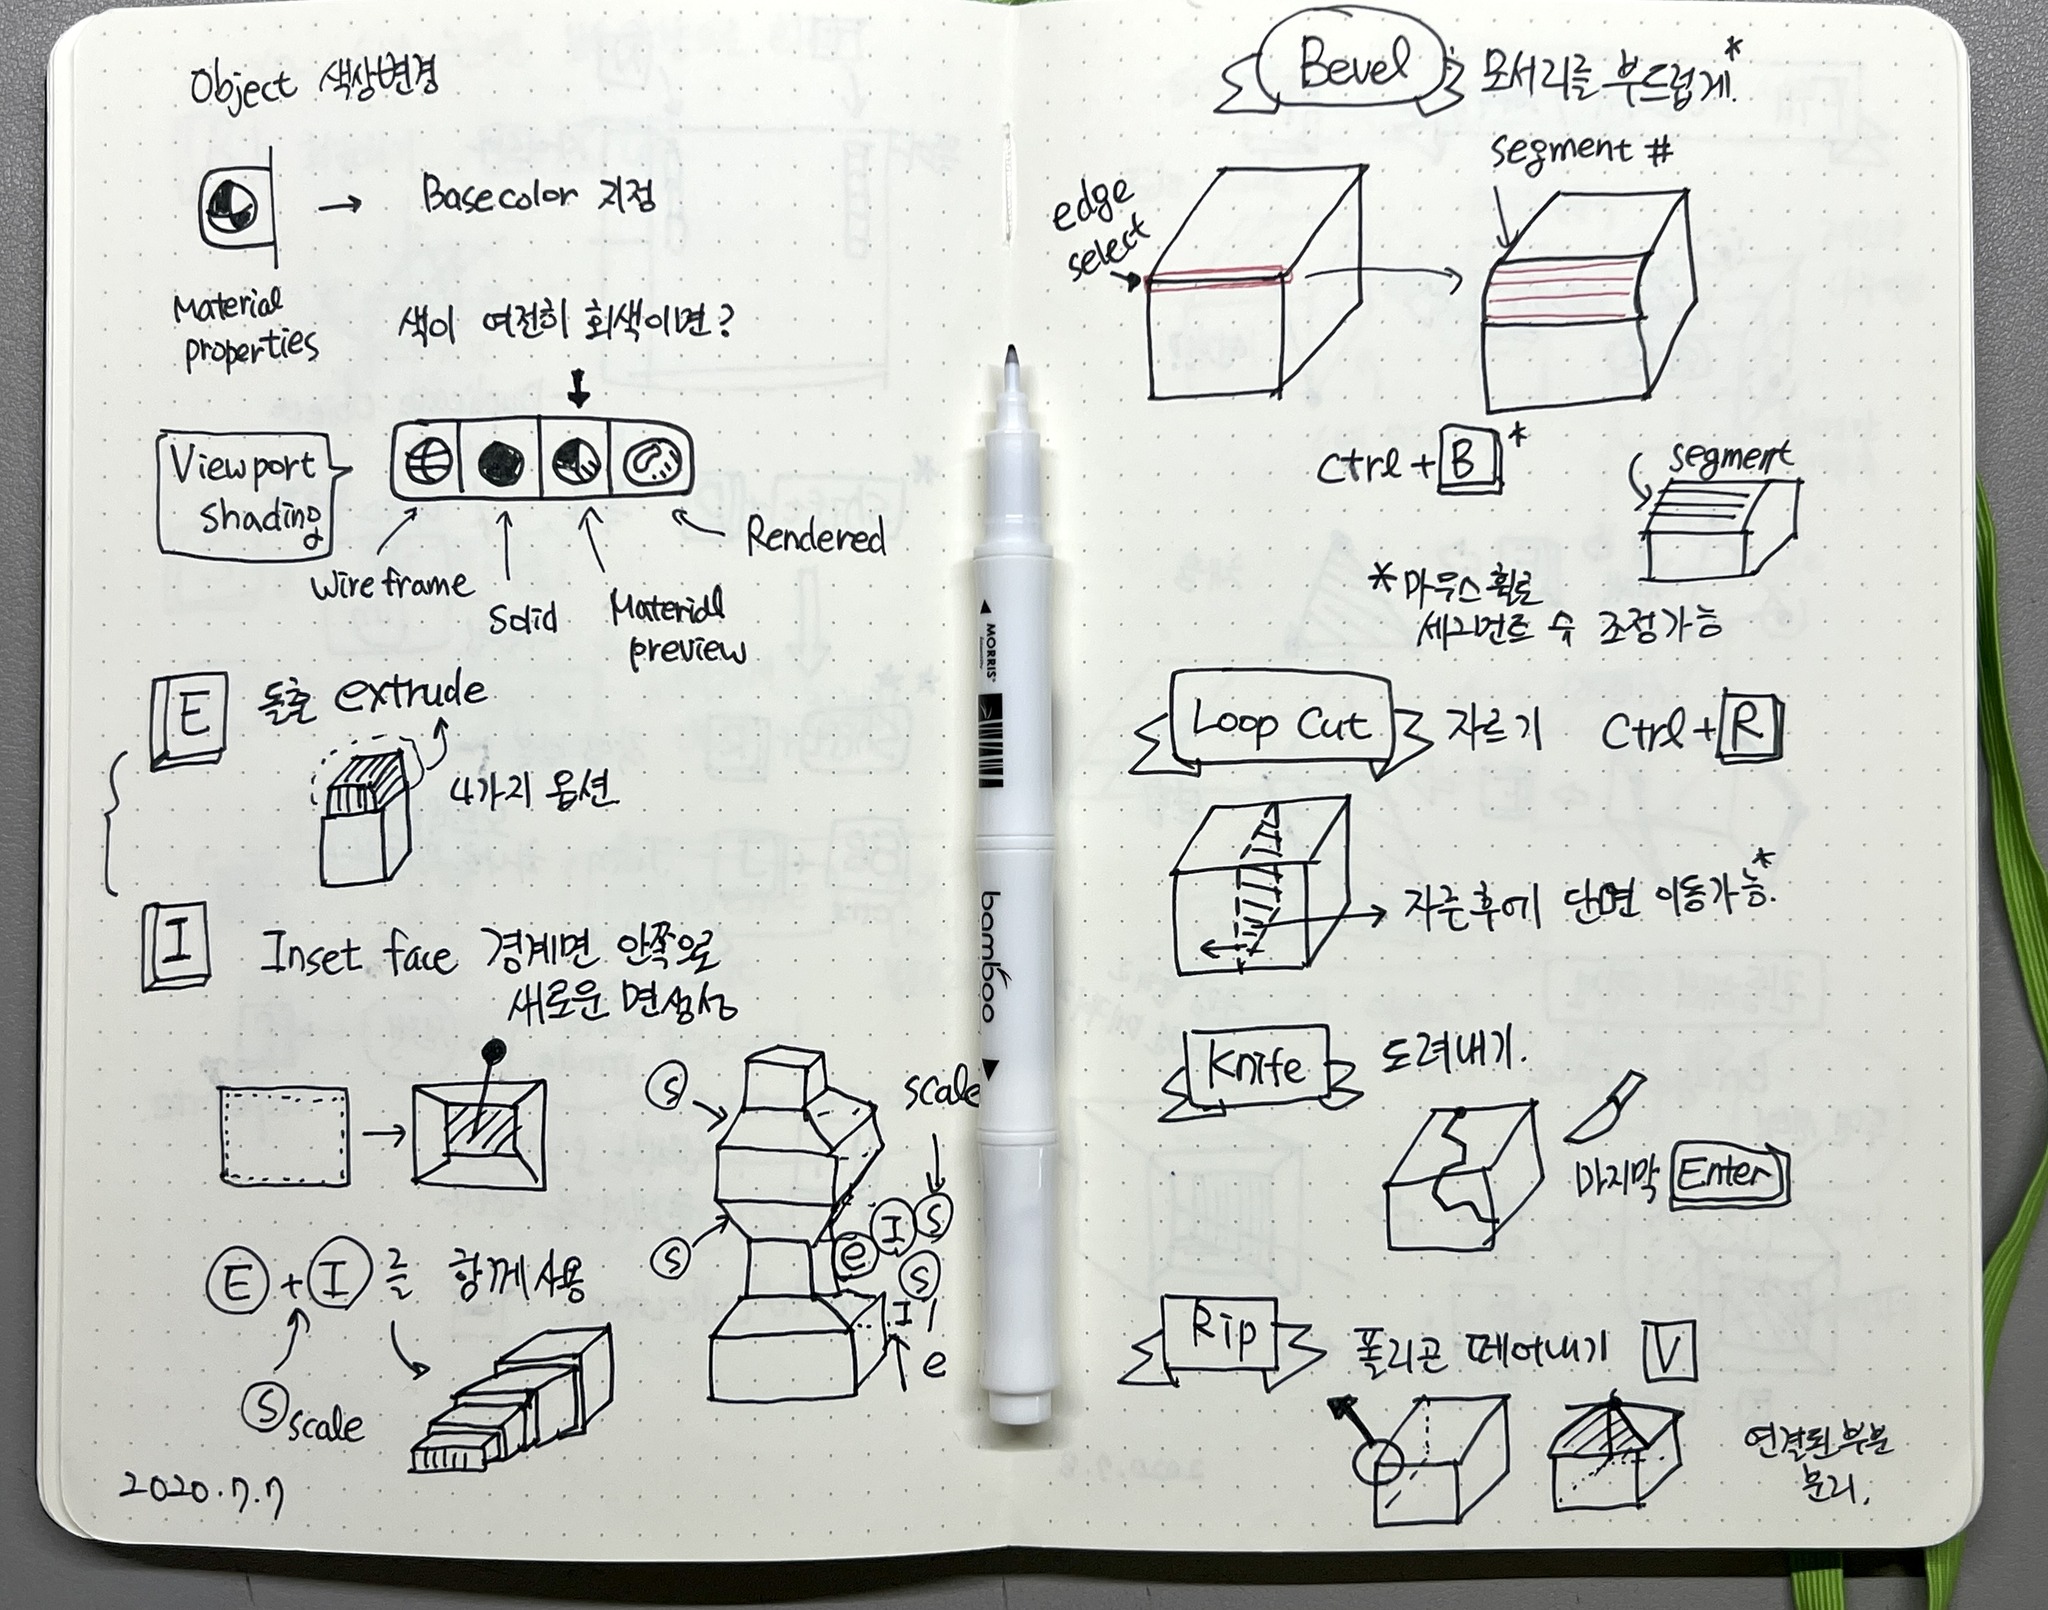 Object 색상변경
→ Basecolor 지정
Material
properties
색이 여전히 회색이면?
Viewport
shading
Wireframe
Solid
Material
preview
Rendered
E 돌출 extrude
4가지 옵션
I Inset face 경계면 안쪽으로
새로운 면생성
E + I 를 함께 사용
S scale
S
S
scale
e I S
S
I
e
2020.7.7
MORRIS
bamboo
Bevel 모서리를 부드럽게*
edge
select
segment #
ctrl + B *
segment
* 마우스 휠로
세그먼트 수 조정가능
Loop Cut 자르기 Ctrl + R
자른후에 단면 이동가능*
Knife 도려내기.
마지막 Enter
Rip 폴리곤 떼어내기 V
연결된 부분
분리.